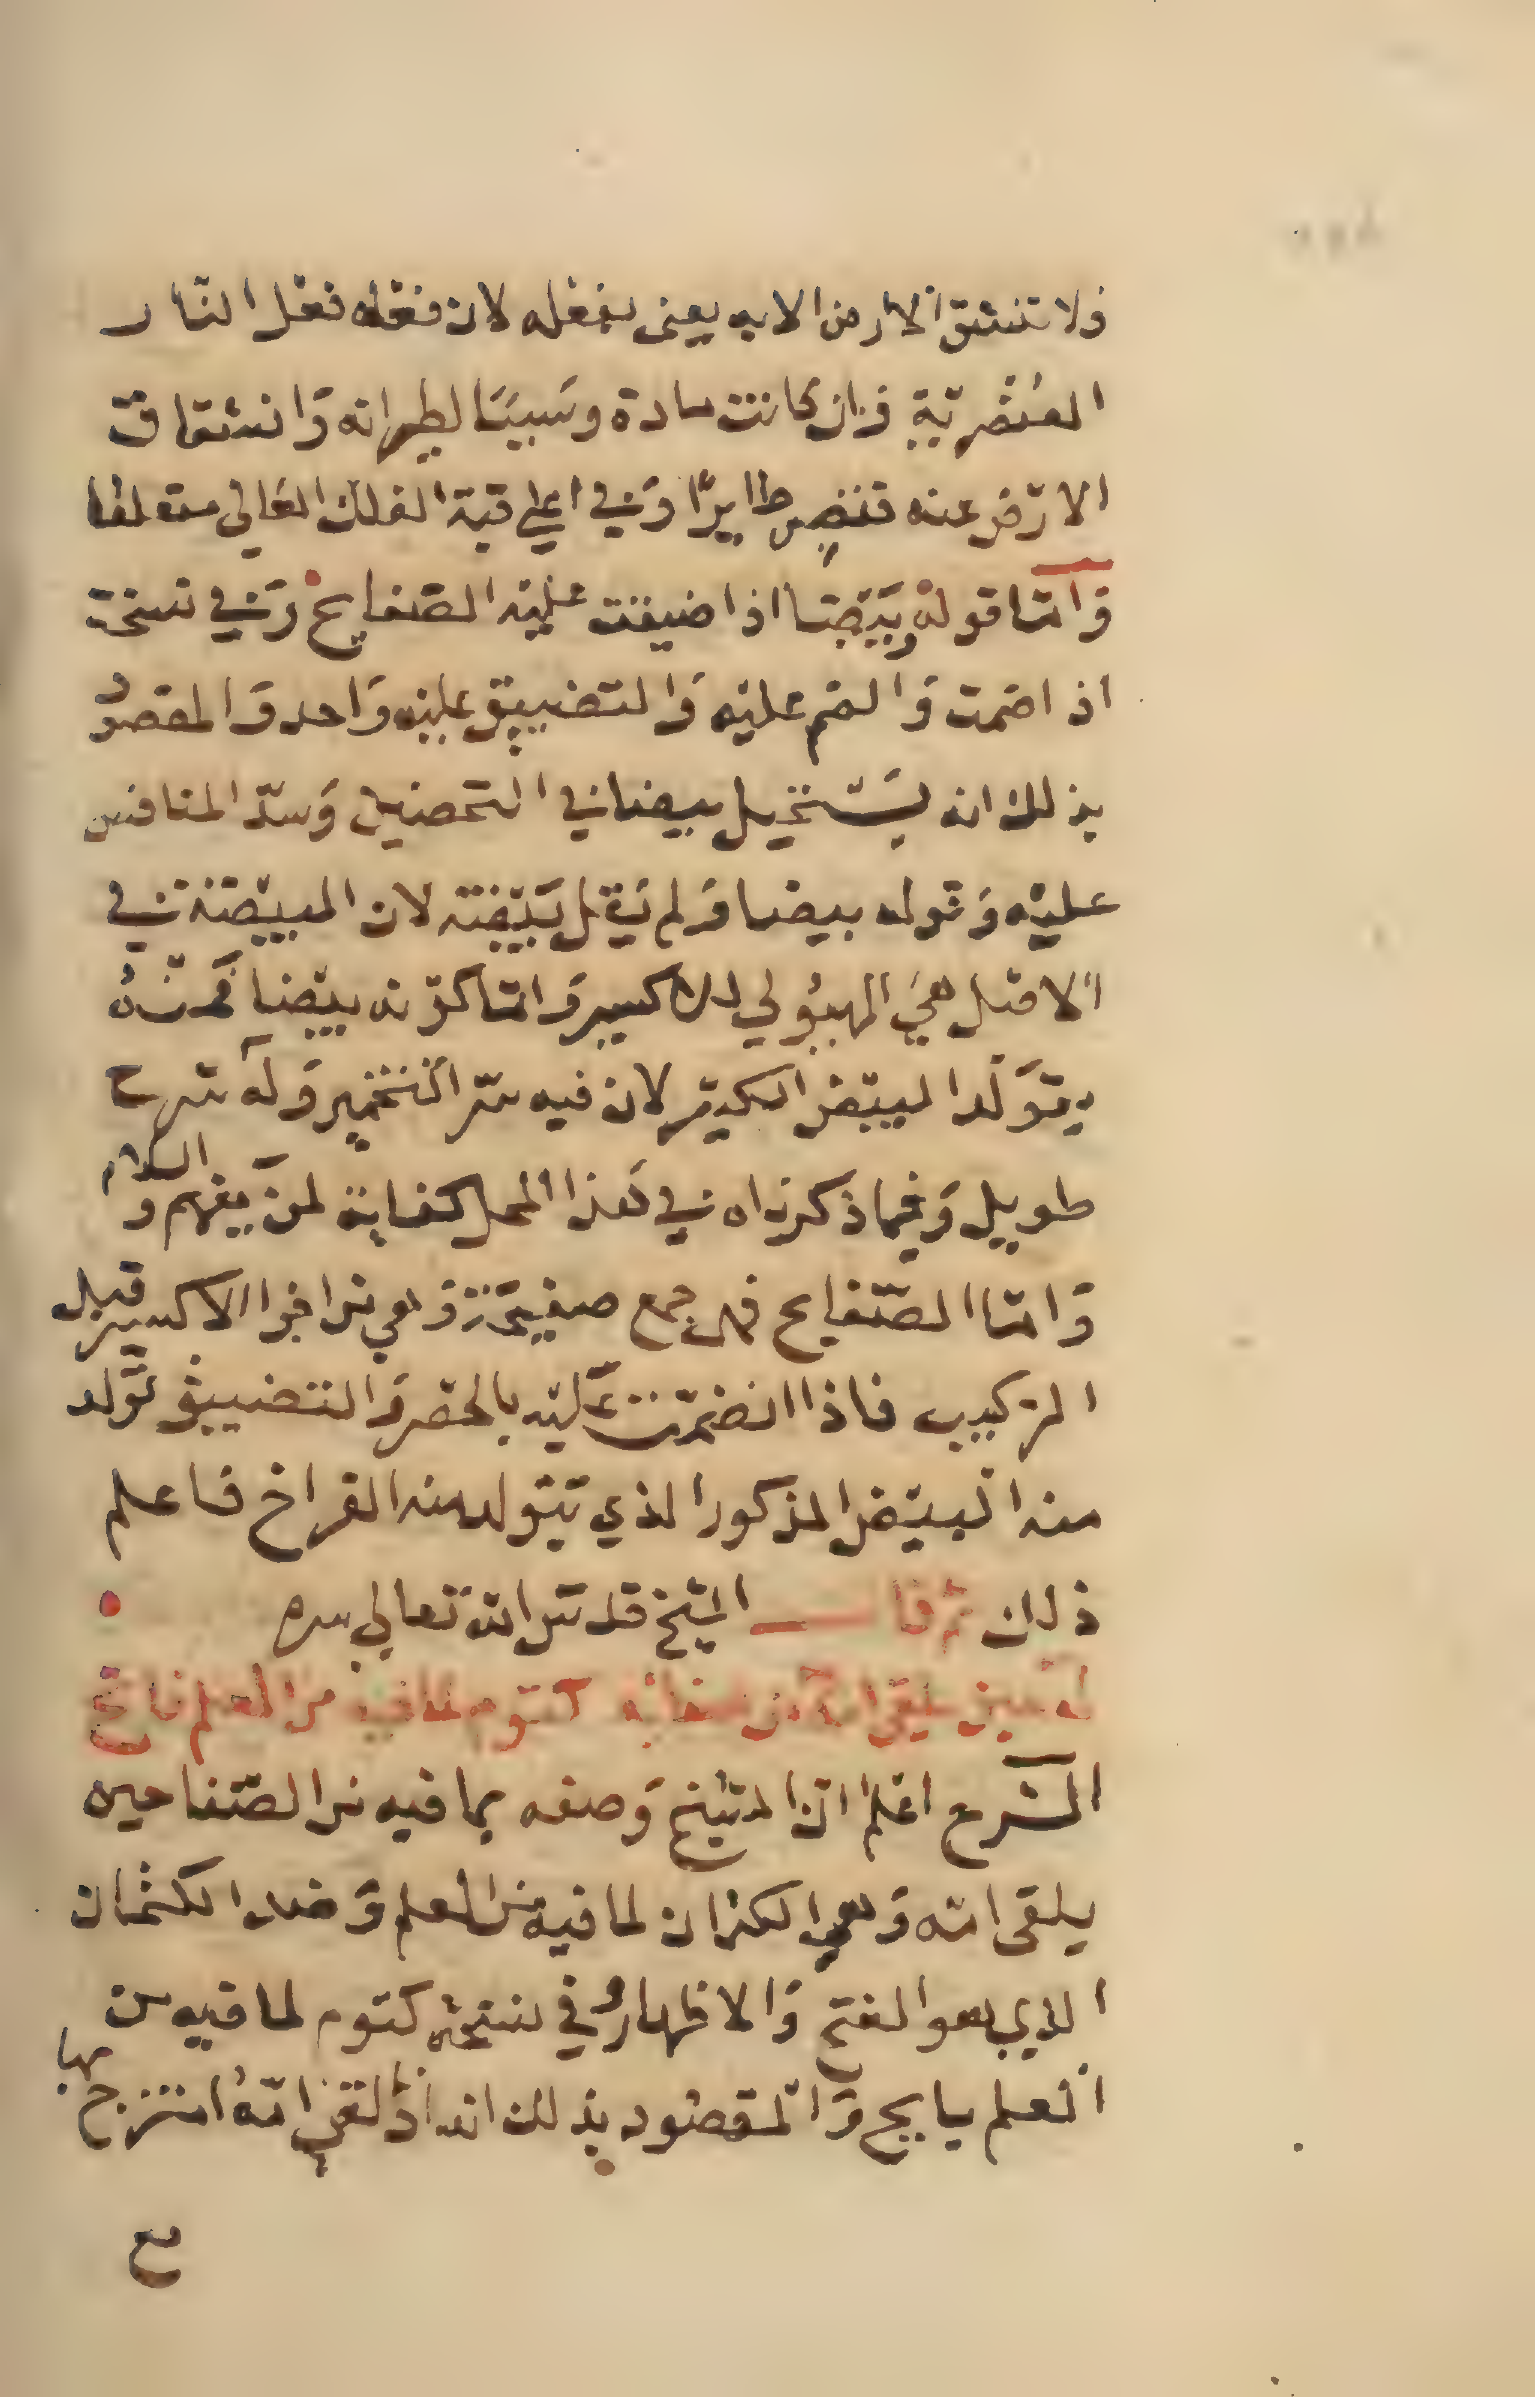 فلا تنشق الارض الا به يعني بفعله لان فعله فعل النار
العنصرية فان كانت مادة وسببا لطيرانه وانشقاق
الارض عنه فتصير طايرا وفي اعلي قبة الفلك العالي متعلقا
واما قوله وبيضا اذا ضيقت عليه الصفايح وفي نسخة
اذ اضمت والضم عليه والتضييق عليه واحد والمقصود
بذلك انه يستحيل بيضا في التحصيل وسد المنافس
عليه وقوله بيضا ولم يقل بيضة لان البيضة في
الاصل هي الهيولي للاكسير واما كونه بيضا فكونه
يتولد البيض الكثير لان فيه سر التخمير وله شرح
طويل وفيما ذكرناه في هذا المحل كفاية لمن يفهم والسلام
واما الصفايح فهي جمع صفيحة وهي من اجزا الاكسير قبل
التركيب فاذا انضمت عليه بالحصر والتضييق تولد
منه البيض المذكور الذي يتولد منه الفراخ فاعلم
ذلك ثم قال الشيخ قدس الله تعالي سره
كتوم لما فيه من العلم فاتح
الشرح اعلم ان الشيخ وصفه بما فيه من الصفا حين
يلقي امه وهي الكتمان لما فيه من العلم وضد الكتمان
الذي هو الفتح والاظهار وفي نسخة كتوم لما فيه من
العلم بايح والمقصود بذلك انه اذ القي امه امتزج بها
مع